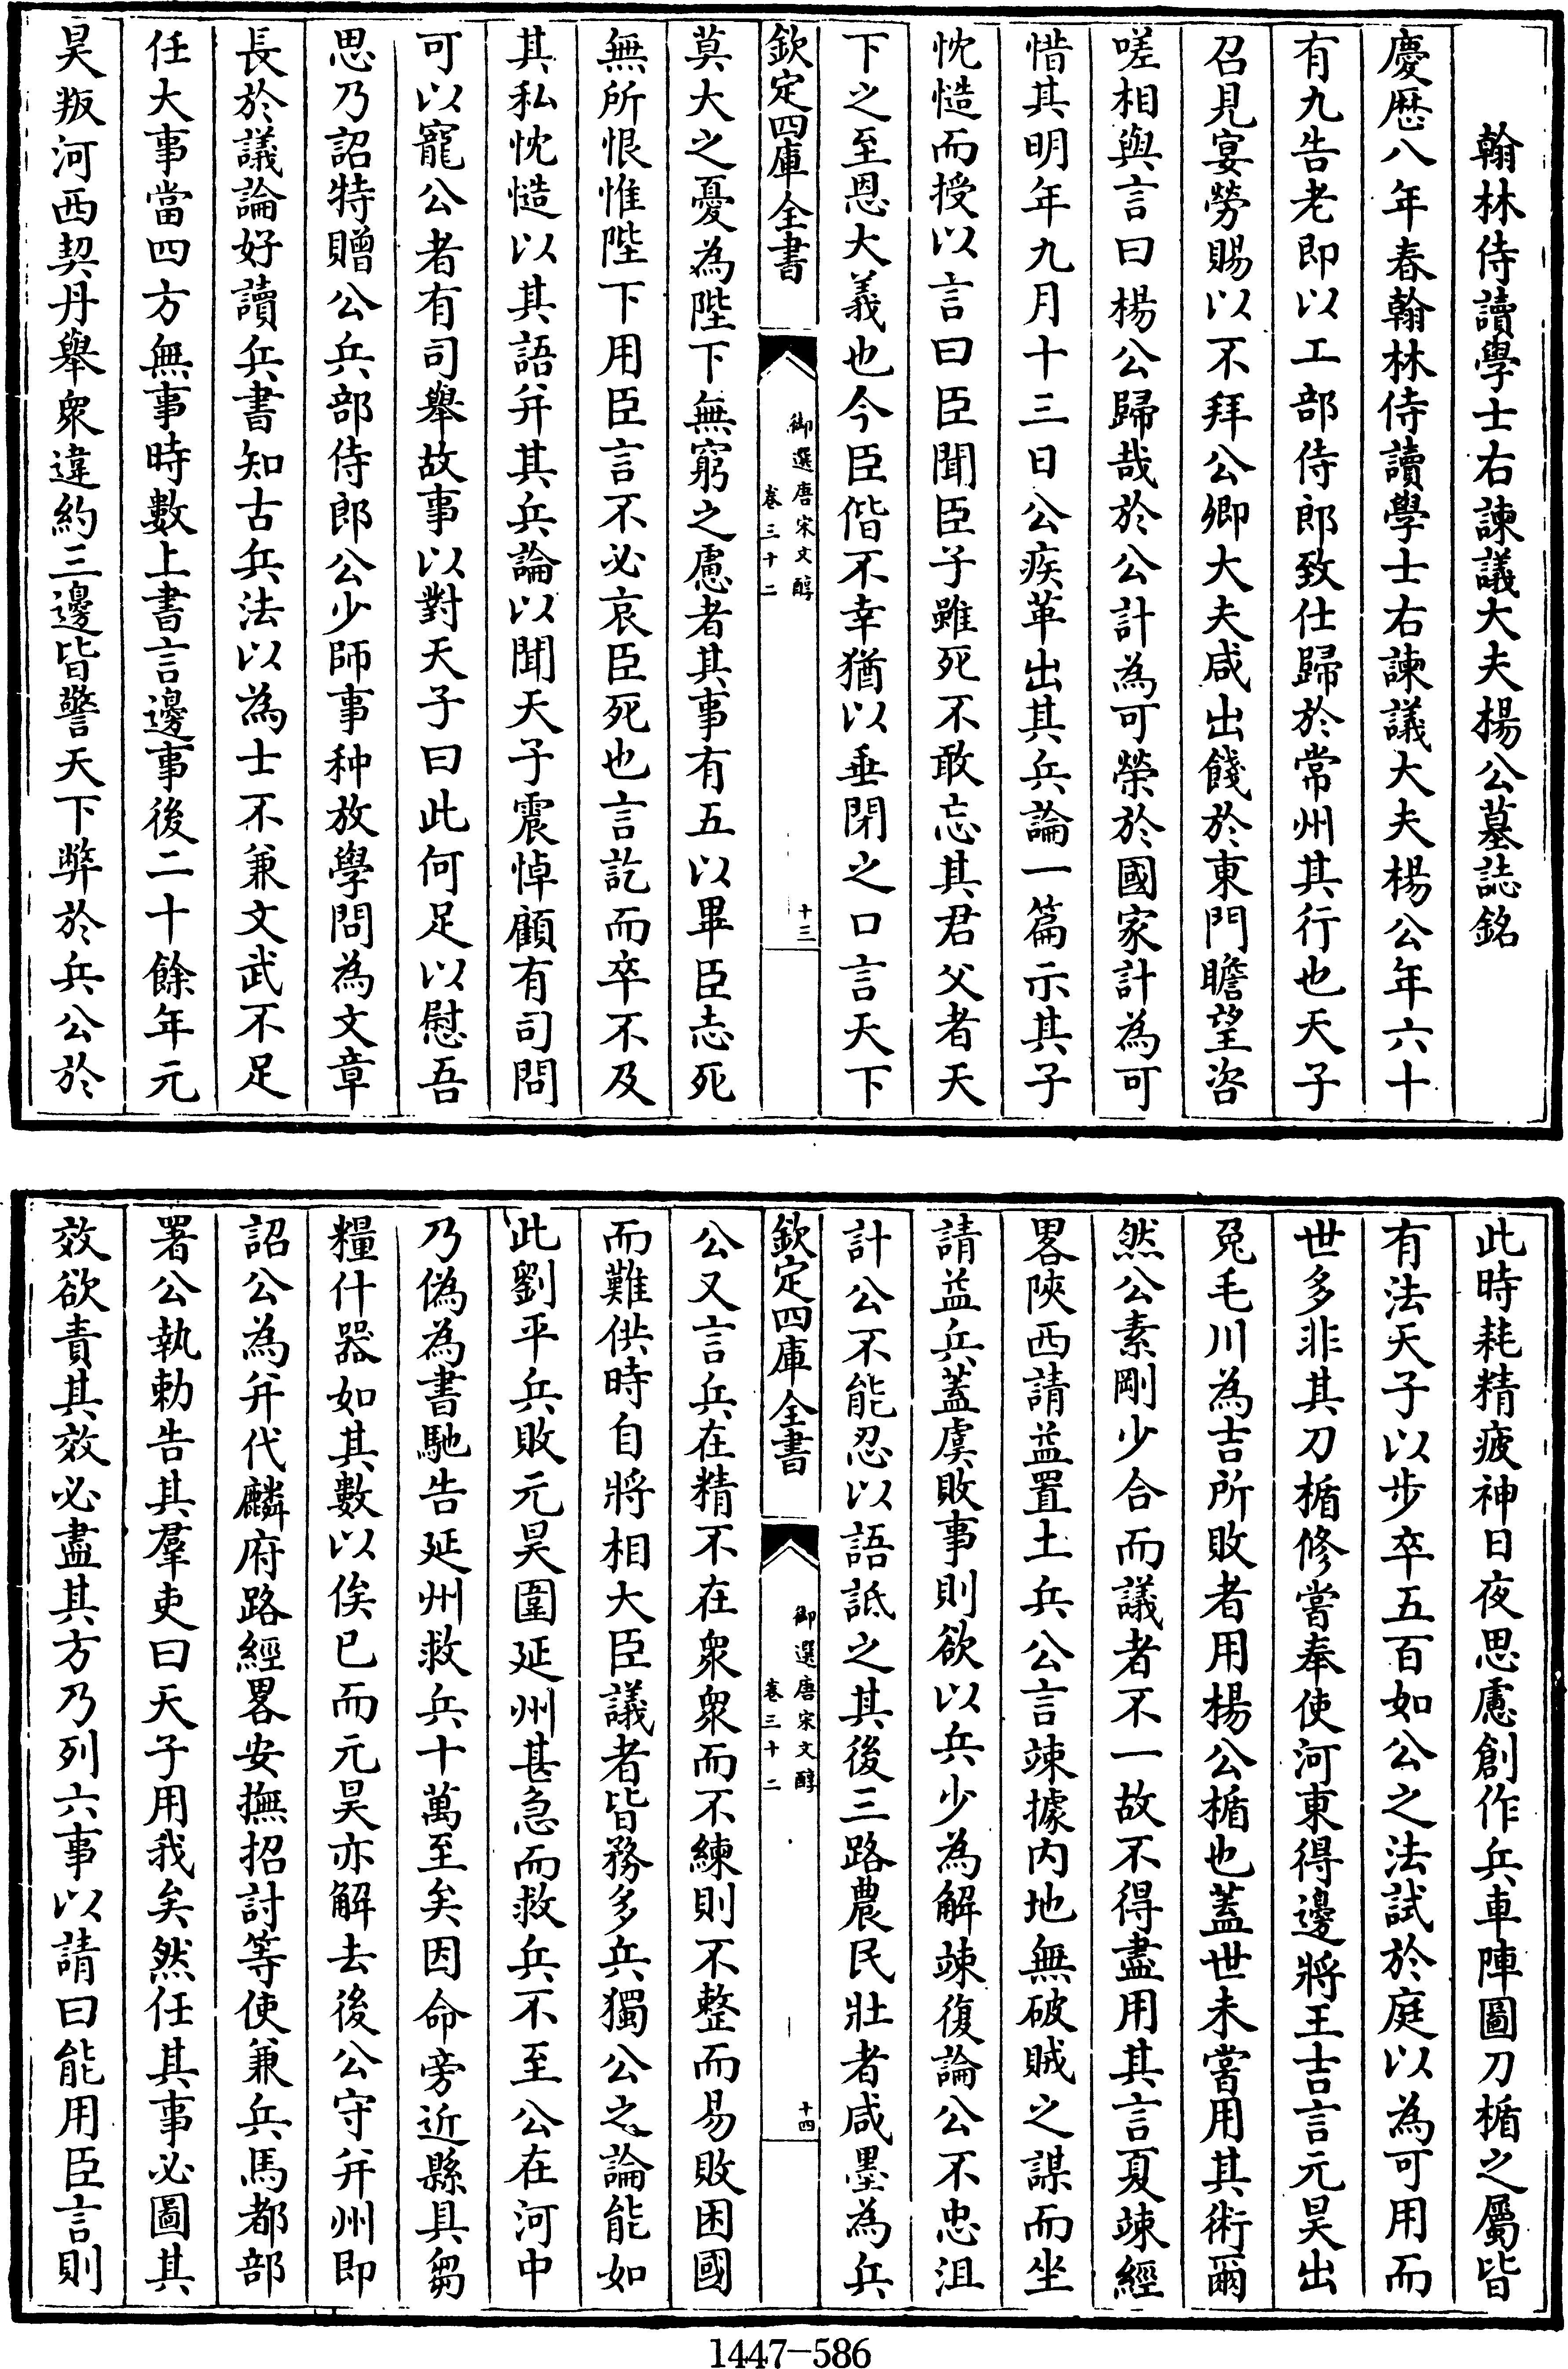 翰林侍讀學士右諫議大夫楊公墓誌銘
慶歴八年春翰林侍讀學士右諫議大夫楊公年六十
有九告老即以工部侍郎致仕歸於常州其行也天子
召見宴勞賜以不拜公卿大夫咸出餞於東門瞻望咨
嗟相與言曰楊公歸哉於公計為可榮於國家計為可
惜其明年九月十三日公疾革出其兵論一篇示其子
忱慥而授以言曰臣聞臣子雖死不敢忘其君父者天
下之至恩大義也今臣偕不幸猶以垂閉之口言天下
欽定四庫全書
御選唐宋文醇
卷三十二
十三
莫大之憂為陛下無窮之慮者其事有五以畢臣志死
無所恨惟陛下用臣言不必哀臣死也言訖而卒不及
其私忱慥以其語并其兵論以聞天子震悼顧有司問
可以寵公者有司舉故事以對天子曰此何足以慰吾
思乃詔特贈公兵部侍郎公少師事种放學問為文章
長於議論好讀兵書知古兵法以為士不兼文武不足
任大事當四方無事時數上書言邊事後二十餘年元
昊叛河西契丹舉衆違約三邊皆警天下弊於兵公於
此時耗精疲神日夜思慮創作兵車陣圖刀楯之屬皆
有法天子以步卒五百如公之法試於庭以為可用而
世多非其刀楯修嘗奉使河東得邊將王吉言元昊出
兎毛川為吉所敗者用楊公楯也蓋世未嘗用其術爾
然公素剛少合而議者不一故不得盡用其言夏竦經
畧陜西請益置土兵公言竦據内地無破賊之謀而坐
請益兵蓋虞敗事則欲以兵少為解竦復論公不忠沮
計公不能忍以語詆之其後三路農民壯者咸墨為兵
欽定四庫全書
御選唐宋文醇
卷三十二
十四
公又言兵在精不在衆衆而不練則不整而易敗困國
而難供時自將相大臣議者皆務多兵獨公之論能如
此劉平兵敗元昊圍延州甚急而救兵不至公在河中
乃偽為書馳告延州救兵十萬至矣因命旁近縣具芻
糧什器如其數以俟已而元昊亦解去後公守并州即
詔公為并代麟府路經畧安撫招討等使兼兵馬都部
署公執勅告其羣吏曰天子用我矣然任其事必圖其
效欲責其效必盡其方乃列六事以請曰能用臣言則
1447-586